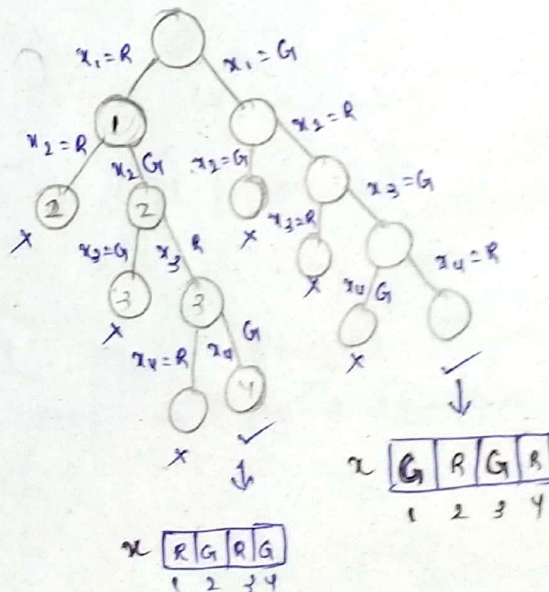 x₁ = R x₁ = G
1
x₂ = R x₂ G x₂ = G x₂ = R
2 2
x x₃ = G x₃ R x x₃ = R x₃ = G
3 3
x x₄ = R x₄ G x x₄ G x₄ = R
4
x ✓ x ✓
↓ ↓
x G R G R
1 2 3 4
x R G R G
1 2 3 4